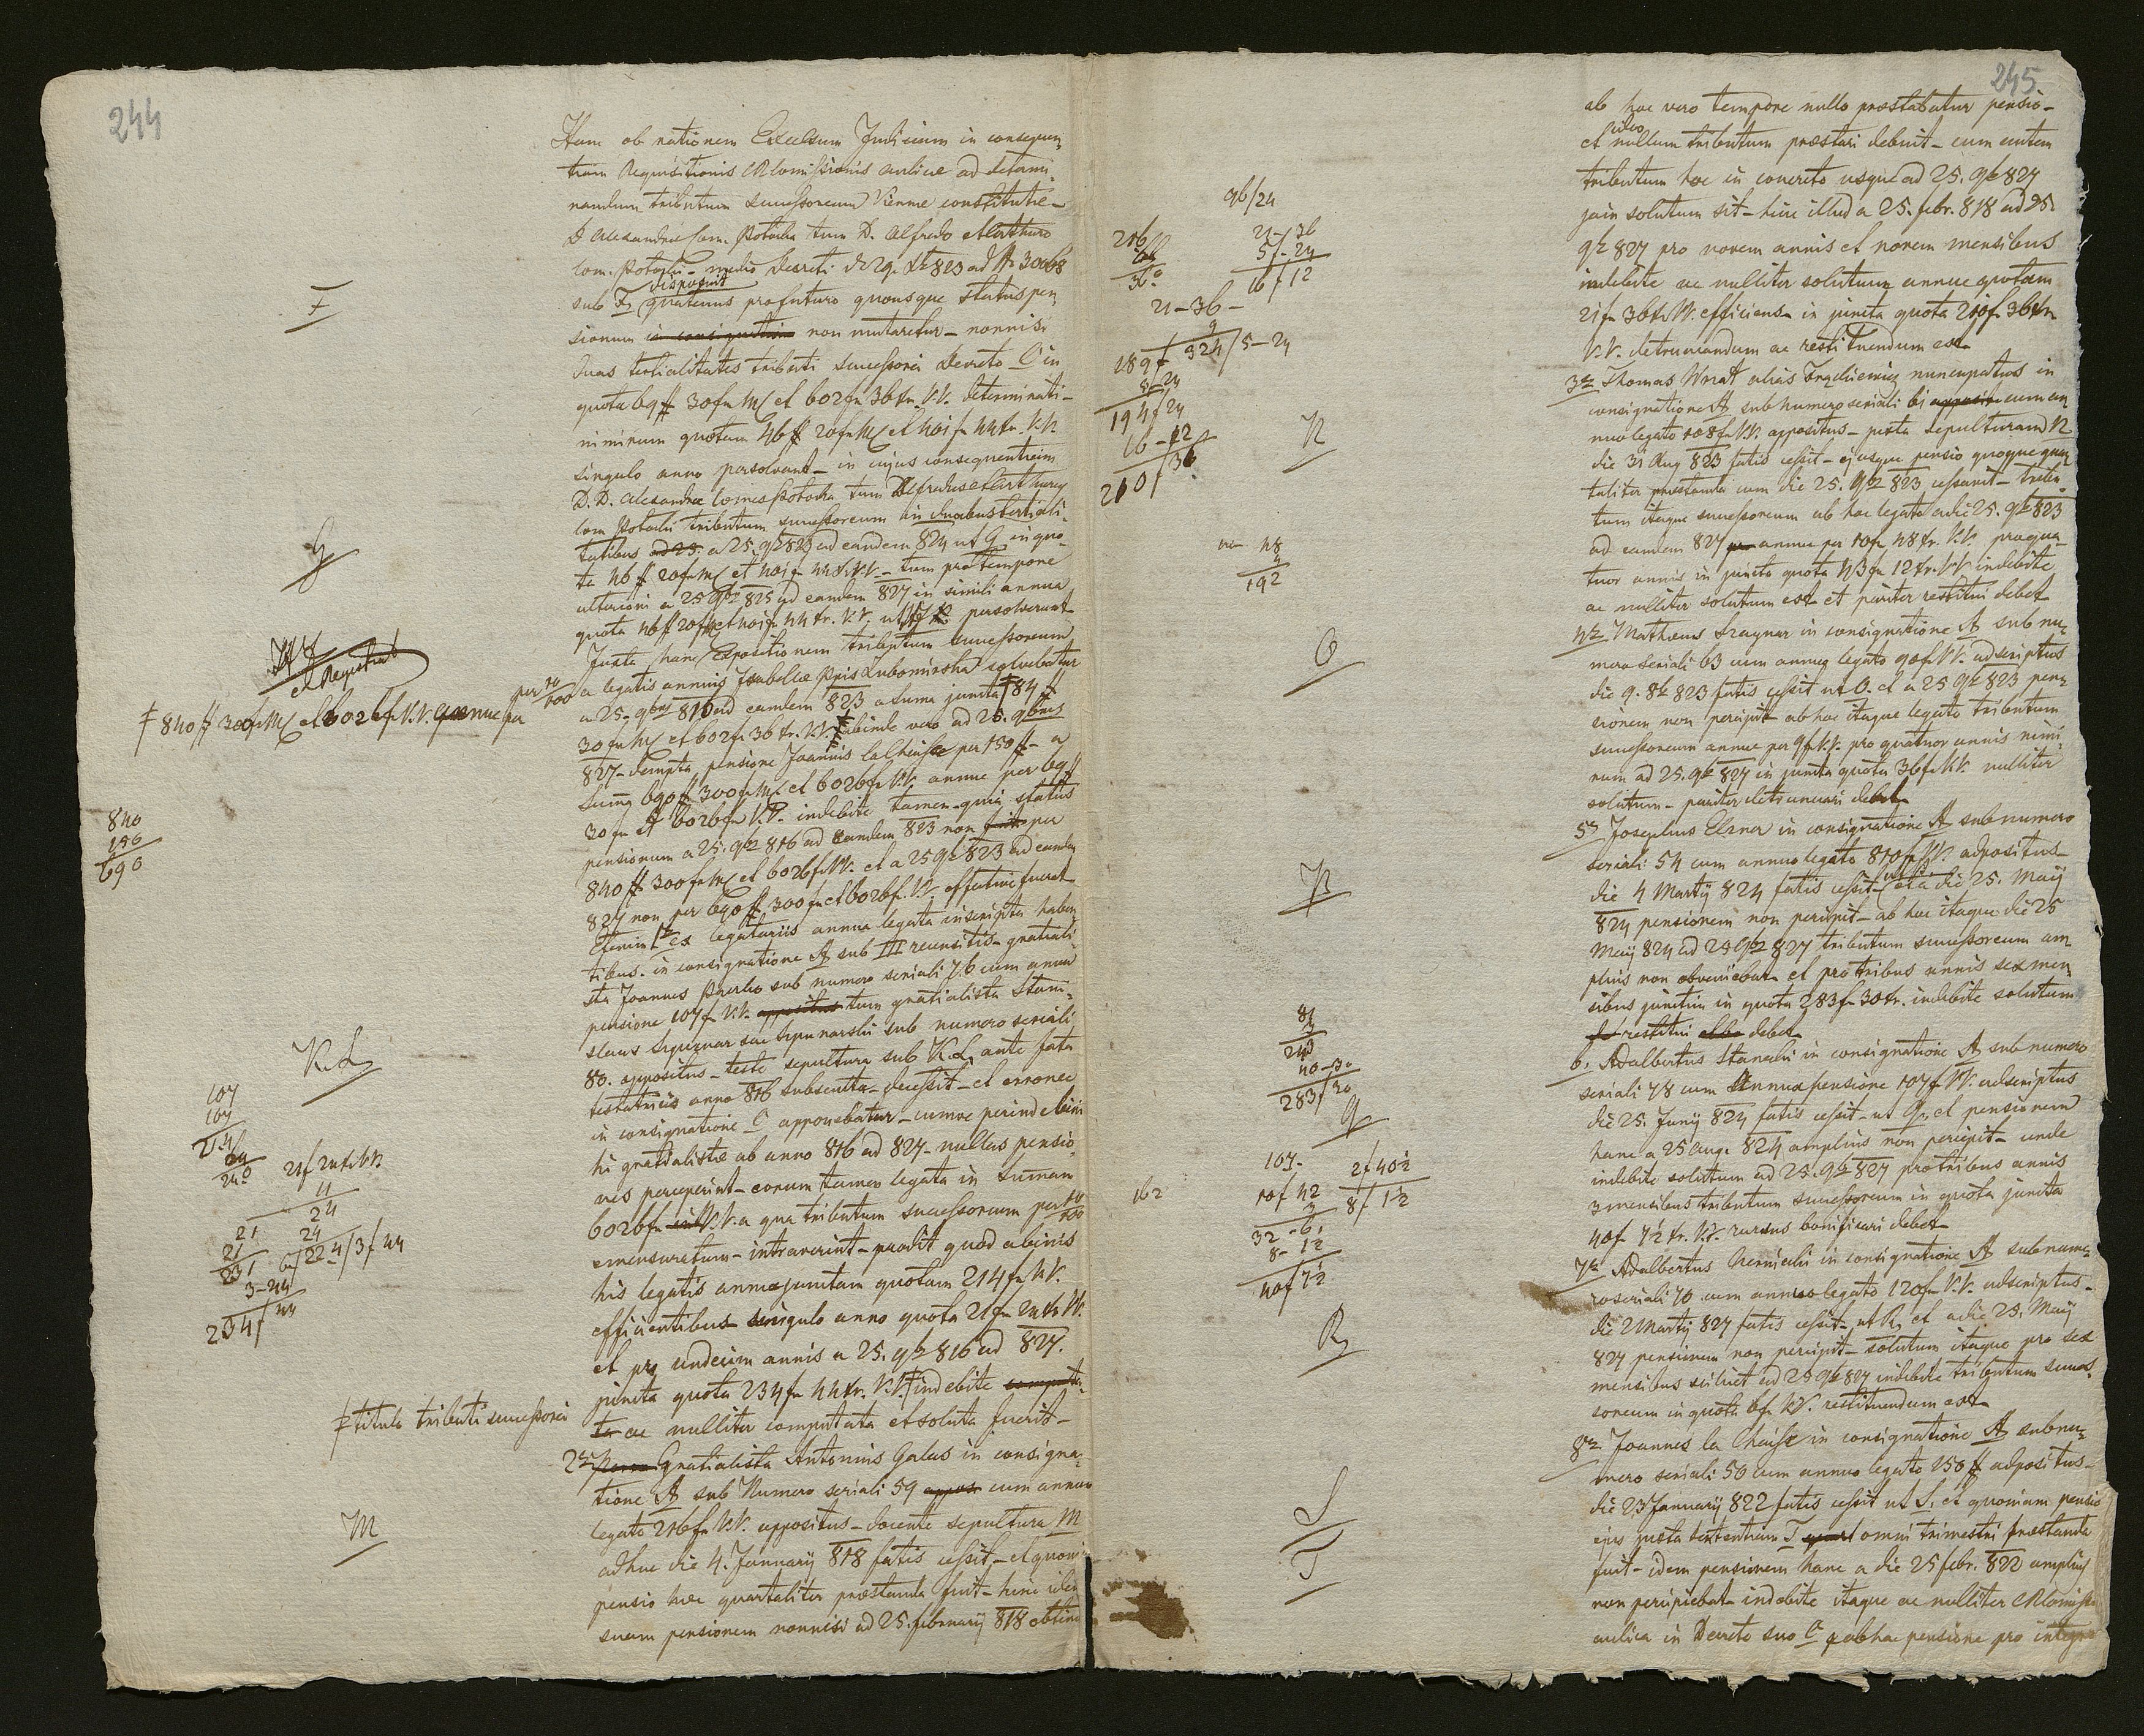 244
Hanc ob rationem Excelsum Judicium in consequen-
tiam Requisitionis CRComissionis aulicae ad determi-
nandum tributum successoreum Viennae constitutae -
D Alexandrae Com. Potocka tum D. Alfredo et Arthuro
Com. Potocki - medio Decreti dto 29. Xbr 823 ad N 30068
F
sub F, disposuit quatenus pro futuro quousque status pen-
sionum in consignation non mutaretur - nonnisi
duas tertialitates tributi successorei Decreto C in
quota 69 # 30 fr M et 602 fr 36 xr. V.V. determinati -
nimirum quotam 46 # 20 fr M et 401 fr 44 xr. V.V.
singulo anno persolvant - in cujus consequentiam
D.D. Alexandra Comes Potocka tum Alfredus et Arthurus
Com. Potocki tributum successoreum in duabus tertiali-
G
tatibus ad 25. a 25. 9br 823 ad eandem 824 ut G in quo-
ta 46 # 20 fr M et 401 fr 44 xr V.V. - tum pro tempore
ulteriori a 25 9br 825 ad eandem 827 in simili annua
quota 46 # 20 fr M et 401 fr 44 xr. V.V. ut persolverunt
Juxta hanc Expositionem tributum successoreum
a legatis annuis Isabellae Ppis Lubomirska solvebatur
per 10/100
‡ 840 # 300 fr M et 6026 fr V.V. annue per
a 25. 9bris 816 ad eandem 823 a Suma juncta ‡ 84 #
30 fr M et 602 fr 36 xr. V.V. abinde vero ad 25. 9bris
827 - dempta pensione Joannis la Chaise per 150 # - a
Suma 690 # 300 fr M et 6026 fr V.V. annue per 69 #
30 fr et 6026 fr V.V. indebite tamen quia status
840
150
690
pensionum a 25. 9br 816 ad eandem 823 non fuit per
840 # 300 fr M et 6026 fr VV. et a 25 9br 823 ad eandem
827 non per 690 # 300 fr et 6026 fr. V.V. effective fuerat
Etenim 1o ex legatariis annua legata inscripta haben-
tibus in consignatione A sub III recensitis - gratiali-
sta Joannes Pawlio sub numero seriali 76 cum annua
pensione 107 fr V.V. appositus tum gratialista Stani-
slaus sub numero seriali
K.L.
80. appositus - teste sepultura sub K.L. ante fata
testatricis anno 816 subsecuta - decessit - et erronee
in consignatione C apponebatur - cumve perinde bini
hi gratialistae ab anno 816 ad 827 - nullas pensio-
nes perceperint - eorum tamen legata in Sumam
6026 fr V.V. a qua tributum successoreum per 10/100
emensuratum - intraverint - prodit quod a binis
his legatis annue junctam quotam 214 fr V.V.
efficientibus singulo anno quota 21 fr 24 xr V.V.
et pro undecim annis a 25. 9br 816 ad 827.
juncta quota 234 fr 44 xr. V.V. ‡ indebite computa-
‡ titulo tributi successorei
ta ac nulliter computata et soluta fuerit -
107
107
214
24
240
21 f 24 xr V.V.
11
24
24
21
21
231
3-44
234 f 44
2o Gratialista Antonius Galas in consigna-
tione A sub Numero seriali 59 appos. cum annuo
M
legato 216 fr V.V. appositus - docente sepultura M
adhuc die 4. January 818 fatis cessit - et quoniam
pensio haec quartaliter praestanda fuit - hinc idem
suam pensionem nonnisi ad 25. february 818 obtinuit
245
ab hoc vero tempore nulla praestabatur pensio -
et ideo nullum tributum praestari debuit - cum autem
tributum hoc in concreto usque ad 25. 9br 827
jam solutum sit - hinc illud a 25. febr. 818 ad 25.
9br 827 pro novem annis et novem mensibus
indebite ac nulliter solutum annue quotam
21 fr 36 xr V.V. efficiens in juncta quota 210 fr 36 xr
V.V. detruncandum ac restituendum est
96/24
216
21-36
5-24
16 f 12
21-36-
9
189 f
324/5-24
5-24
194 f 24
16-12
210 f 36
3o Thomas Wnat alias nuncupatus in
consignatione A sub numero seriali 61 apposit. cum an-
N
nuo legato 108 fr V.V. appositus - juxta sepulturam N
die 31 Aug 823 fatis cessit - ejusque pensio quoque quar-
taliter praestanda cum die 25. 9br 823 cessavit - tribu-
tum itaque successoreum ab hoc legato a die 25. 9br 823
ad eandem 827 annue per 10 fr 48 xr. V.V. pro qua-
tuor annis in juncta quota 43 fr 12 xr. V.V. indebite
ac nulliter solutum est et pariter restitui debet
48
4
192
4o Mathaeus in consignatione A sub nu-
mero seriali 63 cum annuo legato 90 fr V.V. adscriptus
O
die 9. 8br 823 fatis cessit ut O. et a 25 9br 823 pen-
sionem non percipit ab hoc itaque legato tributum
successoreum annue per 9 fr V.V. pro quatuor annis nimi-
rum ad 25. 9br 827 in juncta quota 36 fr V.V. nulliter
solutum - pariter detruncari debet
5o Josephus Elsner in consignatione A sub numero
seriali 54 cum annuo legato 810 fr V.V. adpositus
P
die 4 Marty 824 fatis cessit - ut P et a die 25. May
824 pensionem non percipit - ab hoc itaque die 25
May 824 ad 25 9br 827 tributum successoreum am-
plius non obveniebat et pro tribus annis sex men-
sibus junctim in quota 283 fr 30 xr. indebite solutum
restitui debet
81
3
243
40-30
283 f 30
6. Adalbertus Stanecki in consignatione A sub numero
seriali 78 cum annua pensione 107 fr V.V. adscriptus
Q
die 25. Juny 824 fatis cessit - ut Q, et pensionem
hanc a 25 aug. 824 amplius non percipit - unde
indebite solutum ad 25. 9br 827 pro tribus annis
3 mensibus tributum successoreum in quota juncta
40 f 7 1/2 xr. V.V. rursus bonificari debet
162
107-
10 f 42
3
32-6
8-1 1/2
40 f 7 1/2
2 f 40 1/2
8 f 1 1/2
7o Adalbertus in consignatione A sub nume-
ro seriali 70 cum annuo legato 120 fr V.V. adscriptus -
R
die 2 Marty 827 fatis cessit - ut R, et a die 25. May
827 pensionem non percipit - solutum itaque pro sex
mensibus scilicet ad 25 9br 827 indebite tributum succes-
soreum in quota 6 fr V.V. restituendum est
8o Joannes la Chaise in consignatione A sub nu-
mero seriali 50 cum annuo legato 150 # adpositus -
S
die 23 January 822 fatis cessit ut S, et quoniam pensio
T
ejus juxta sententiam T omni trimestri praestanda
fuit - idem pensionem hanc a die 25 febr. 822 amplius
non percipiebat indebite itaque ac nulliter CRComissio
aulica in Decreto suo C ab hac pensione pro integro